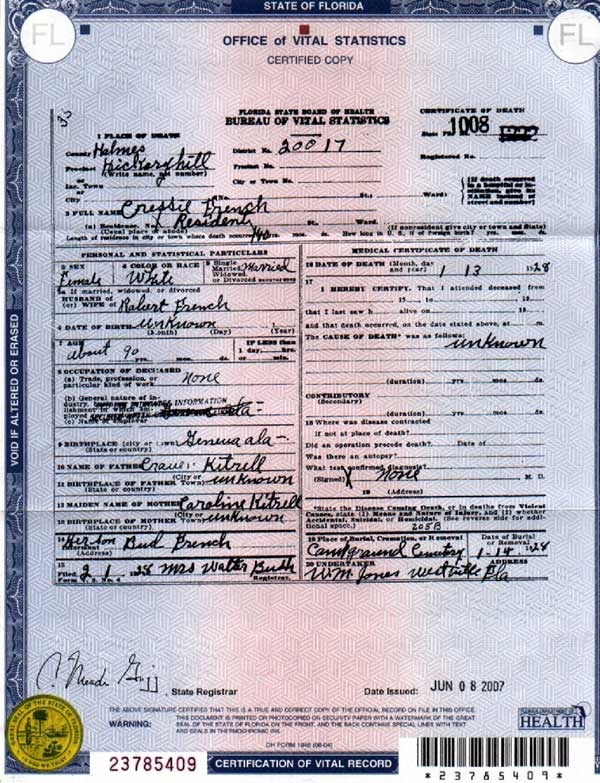 STATE OF FLORIDA
FL
FL
OFFICE of VITAL STATISTICS
CERTIFIED COPY
FLORIDA STATE BOARD OF HEALTH
BUREAU OF VITAL STATISTICS
CERTIFICATE OF DEATH
1 PLACE OF DEATH
State File 1008
County Holmes
District No. 20017
Registered No.
Precinct Hickory hill
(Write name, not number)
Precinct No.
or
Inc. Town
City or Town No.
or
City
No. St., Ward)
(If death occurred in a hospital or institution, give its NAME instead of street and number)
2 FULL NAME Cressie French
(a) Residence. No. Resident St. Ward.
(Usual place of abode)
(If nonresident give city or town and State)
Length of residence in city or town where death occurred yrs. mos. ds. How long in U. S., if of foreign birth? yrs. mos. ds.
PERSONAL AND STATISTICAL PARTICULARS
3 SEX Female
4 COLOR OR RACE White
5 Single Married, Widowed, or Divorced Married
5a If married, widowed, or divorced
HUSBAND of
(or) WIFE of Robert French
6 DATE OF BIRTH unKnown
(Month) (Day) (Year)
7 AGE about 90 yrs. mos. ds.
IF LESS than 1 day, hrs. or min.
8 OCCUPATION OF DECEASED
(a) Trade, profession, or particular kind of work None
(b) General nature of industry,
(c) Name of employer
9 BIRTHPLACE (city or town) Geneva ala
(State or country)
10 NAME OF FATHER Kitrell
11 BIRTHPLACE OF FATHER (City or Town) unKnown
(State or country)
12 MAIDEN NAME OF MOTHER Caroline Kitrell
13 BIRTHPLACE OF MOTHER (City or Town) unKnown
(State or country)
14 Her son Bud French
Informant
(Address)
15
Filed 2 1 28 Mrs Walter Bush
Registrar.
Form V. S. No. 4
MEDICAL CERTIFICATE OF DEATH
16 DATE OF DEATH (Month, day and year) 1 13 1928
17
I HEREBY CERTIFY, That I attended deceased from
19 to 19
that I last saw h alive on 19
and that death occurred, on the date stated above, at m.
The CAUSE OF DEATH* was as follows:
unKnown
(duration) yrs. mos. ds.
CONTRIBUTORY
(Secondary)
(duration) yrs. mos. ds.
18 Where was disease contracted
if not at place of death?
Did an operation precede death? Date of
Was there an autopsy?
What test confirmed diagnosis?
(Signed) None M. D.
19 (Address)
*State the Disease Causing Death, or in deaths from Violent Causes, state (1) Means and Nature of Injury, and (2) whether Accidental, Suicidal, or Homicidal. (See reverse side for additional space.)
205B
19 Place of Burial, Cremation, or Removal
Date of Burial or Removal
Campground Cemetery 1-14 1928
20 UNDERTAKER
ADDRESS
W.M. Jones Westville Fla
VOID IF ALTERED OR ERASED
, State Registrar
Date Issued: JUN 08 2007
THE ABOVE SIGNATURE CERTIFIES THAT THIS IS A TRUE AND CORRECT COPY OF THE OFFICIAL RECORD ON FILE IN THIS OFFICE.
WARNING: THIS DOCUMENT IS PRINTED OR PHOTOCOPIED ON SECURITY PAPER WITH A WATERMARK OF THE GREAT SEAL OF THE STATE OF FLORIDA ON THE FRONT, AND THE BACK CONTAINS SPECIAL LINES WITH TEXT AND SEALS IN THERMOCHROMIC INK.
HEALTH
DH FORM 1946 (08-04)
23785409
CERTIFICATION OF VITAL RECORD
*23785409*